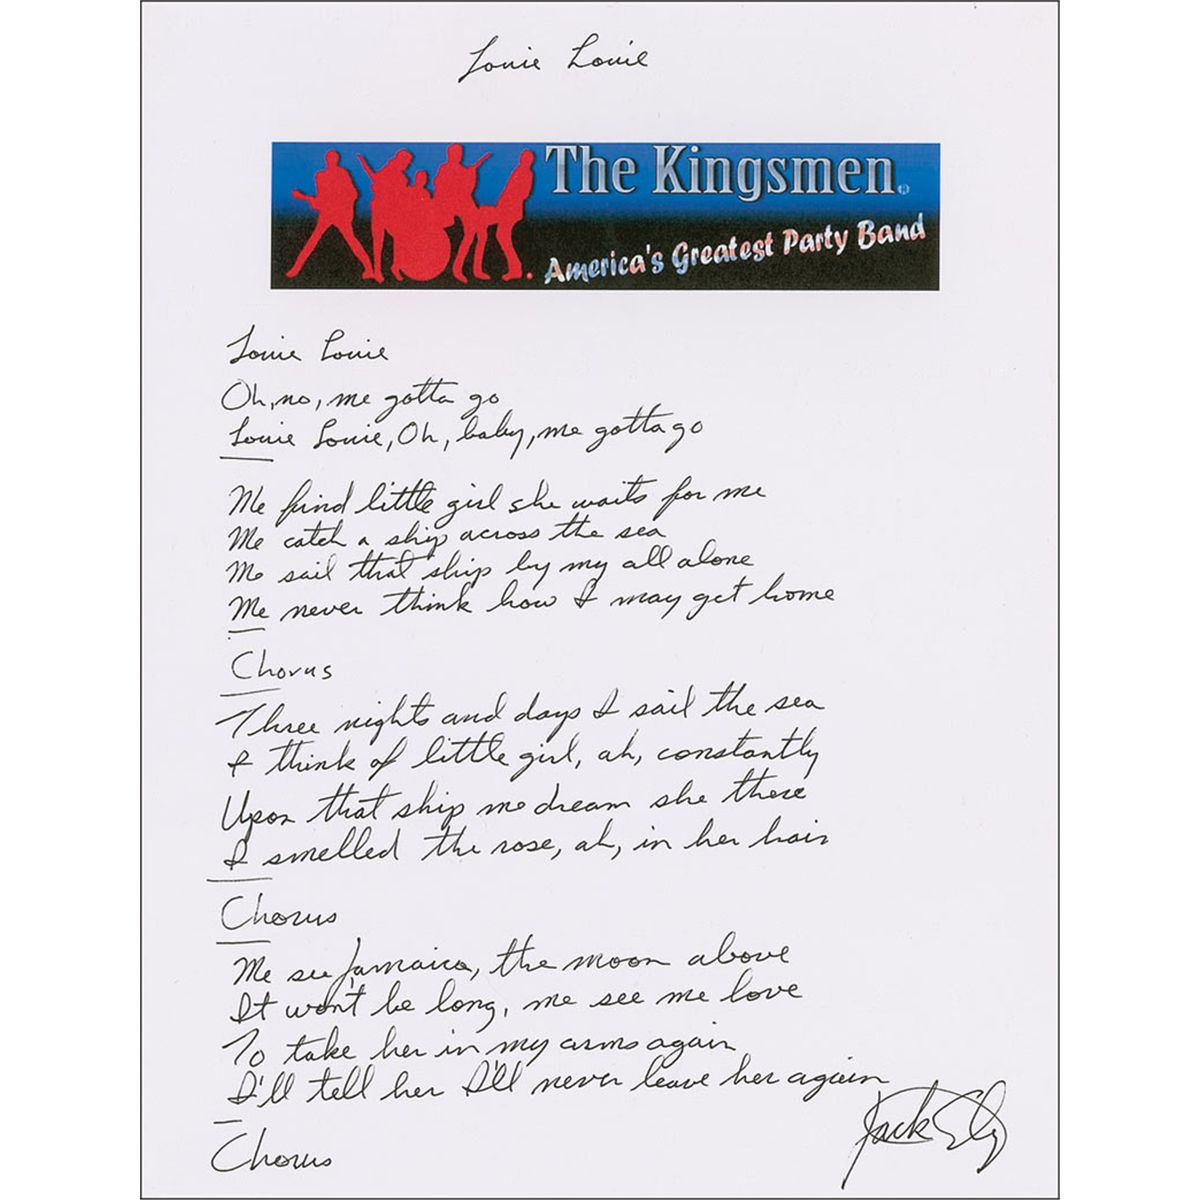 Louie Louie
The Kingsmen®
America's Greatest Party Band
Louie Louie
Oh, no, me gotta go
Louie Louie, Oh, baby, me gotta go
Me find little girl she waits for me
Me catch a ship across the sea
Me sail that ship by my all alone
Me never think how I may get home
Chorus
Three nights and days I sail the sea
I think of little girl, ah, constantly
Upon that ship me dream she there
I smelled the rose, ah, in her hair
Chorus
Me see Jamaica, the moon above
It won't be long, me see me love
To take her in my arms again
I'll tell her I'll never leave her again
Jack Ely
Chorus